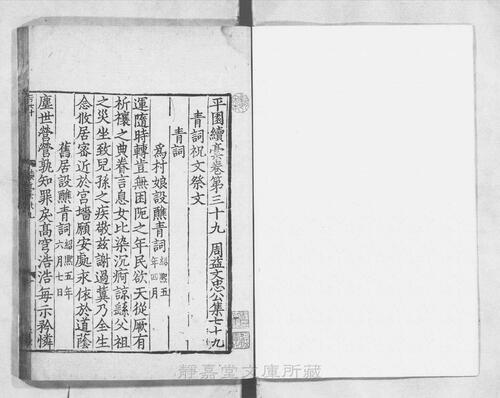 平園續藁卷第三十九　周益文忠公集七十九
青詞祝文祭文
青詞
爲村娘設醮青詞紹熙五年四月
運隨時轉豈無困阨之年民欲天從厥有
祈禳之典眷言息女比染沉痾諒繇父祖
之災坐致兒孫之疾敬茲謝過冀乃全生
念攸居密近於宮墻願安處永依於道蔭
舊居設醮青詞紹熙五年六月七日
塵世營營孰知罪戾高穹浩浩每示矜憐
靜嘉堂文庫所藏